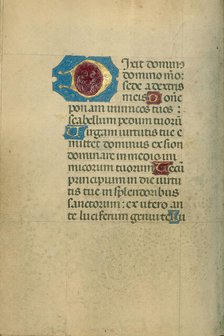 Dixit dominus
domino meo
sede a dextris
meis Donec
ponam inimicos tuos:
scabellum pedum tuorū
Virgam virtutis tue e
mittet dominus ex sion
dominare in medio ini
micorum tuorum Tecū
principium in die virtu
tis tue in splendoribus
sanctorum: ex utero an
te luciferum genui te Iu